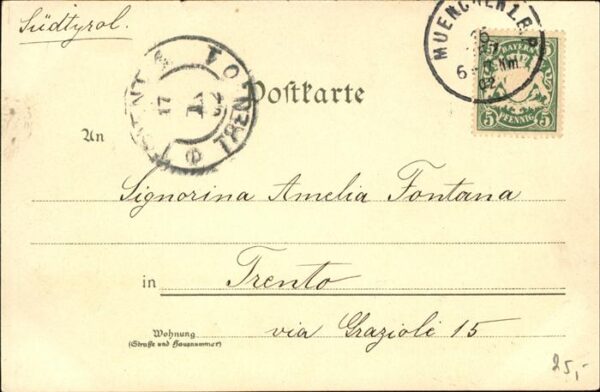 Südtyrol.
MUENCHEN 1. B.P.
6-7 Nm.
02
BAYERN
5 PFENNIG 5
TRIENT
TRENTO
17
Postkarte
An
Signorina Amelia Fontana
in Trento
Wohnung
(Straße und Hausnummer)
via Grazioli 15
25,-